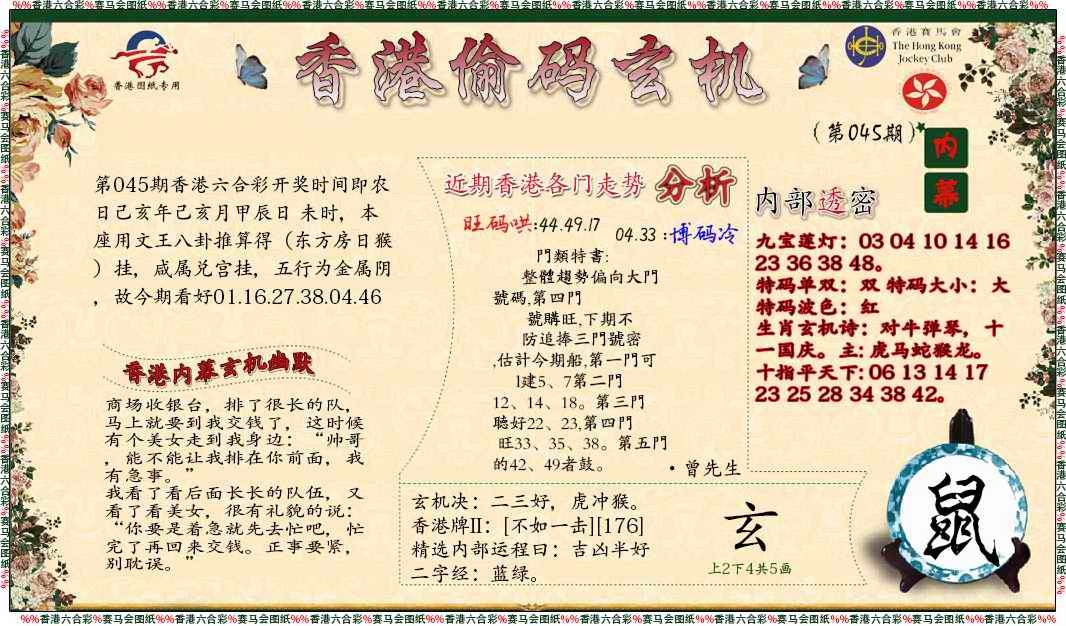 %%香港六合彩%赛马会图纸%%香港六合彩%赛马会图纸%%香港六合彩%赛马会图纸%%香港六合彩%赛马会图纸%%香港六合彩%赛马会图纸%%香港六合彩%赛马会图纸%%香港六合彩%%
香港图纸专用
香港偷码玄机
香港賽馬會
The Hong Kong
Jockey Club
(第045期)
内
幕
第045期香港六合彩开奖时间即农
日己亥年己亥月甲辰日 未时，本
座用文王八卦推算得（东方房日猴
）挂，咸属兑宫挂，五行为金属阴
，故今期看好01.16.27.38.04.46
香港内幕玄机幽默
商场收银台，排了很长的队，
马上就要到我交钱了，这时候
有个美女走到我身边：“帅哥
，能不能让我排在你前面，我
有急事。”
我看了看后面长长的队伍，又
看了看美女，很有礼貌的说：
“你要是着急就先去忙吧，忙
完了再回来交钱。正事要紧，
别耽误。”
近期香港各门走势 分析
旺码哄:44.49.17
04.33 :博码冷
門類特書:
整體趨勢偏向大門
號碼,第四門
號購旺,下期不
防追捧三門號密
,估計今期船,第一門可
1建5、7第二門
12、14、18。第三門
聽好22、23,第四門
旺33、35、38。第五門
的42、49者鼓。
·曾先生
内部透密
九宝莲灯：03 04 10 14 16
23 36 38 48。
特码单双：双 特码大小：大
特码波色：红
生肖玄机诗：对牛弹琴，十
一国庆。主: 虎马蛇猴龙。
十指平天下: 06 13 14 17
23 25 28 34 38 42。
玄机决：二三好，虎冲猴。
香港牌II：[不如一击][176]
精选内部运程曰：吉凶半好
二字经：蓝绿。
玄
上2下4共5画
鼠
%%香港六合彩%赛马会图纸%%香港六合彩%赛马会图纸%%香港六合彩%赛马会图纸%%香港六合彩%赛马会图纸%%香港六合彩%赛马会图纸%%香港六合彩%赛马会图纸%%香港六合彩%%